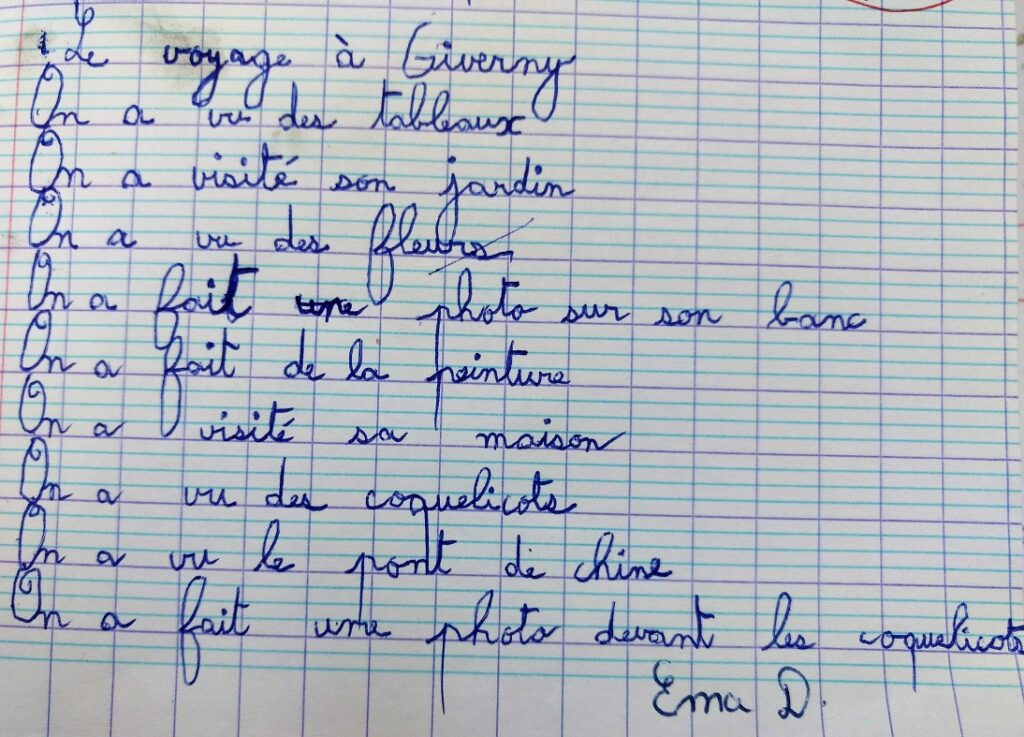 Le voyage à Giverny
On a vu des tableaux
On a visité son jardin
On a vu des fleurs
On a fait une photo sur son banc
On a fait de la peinture
On a visité sa maison
On a vu des coquelicots
On a vu le pont de chine
On a fait une photo devant les coquelicots
Ema D.